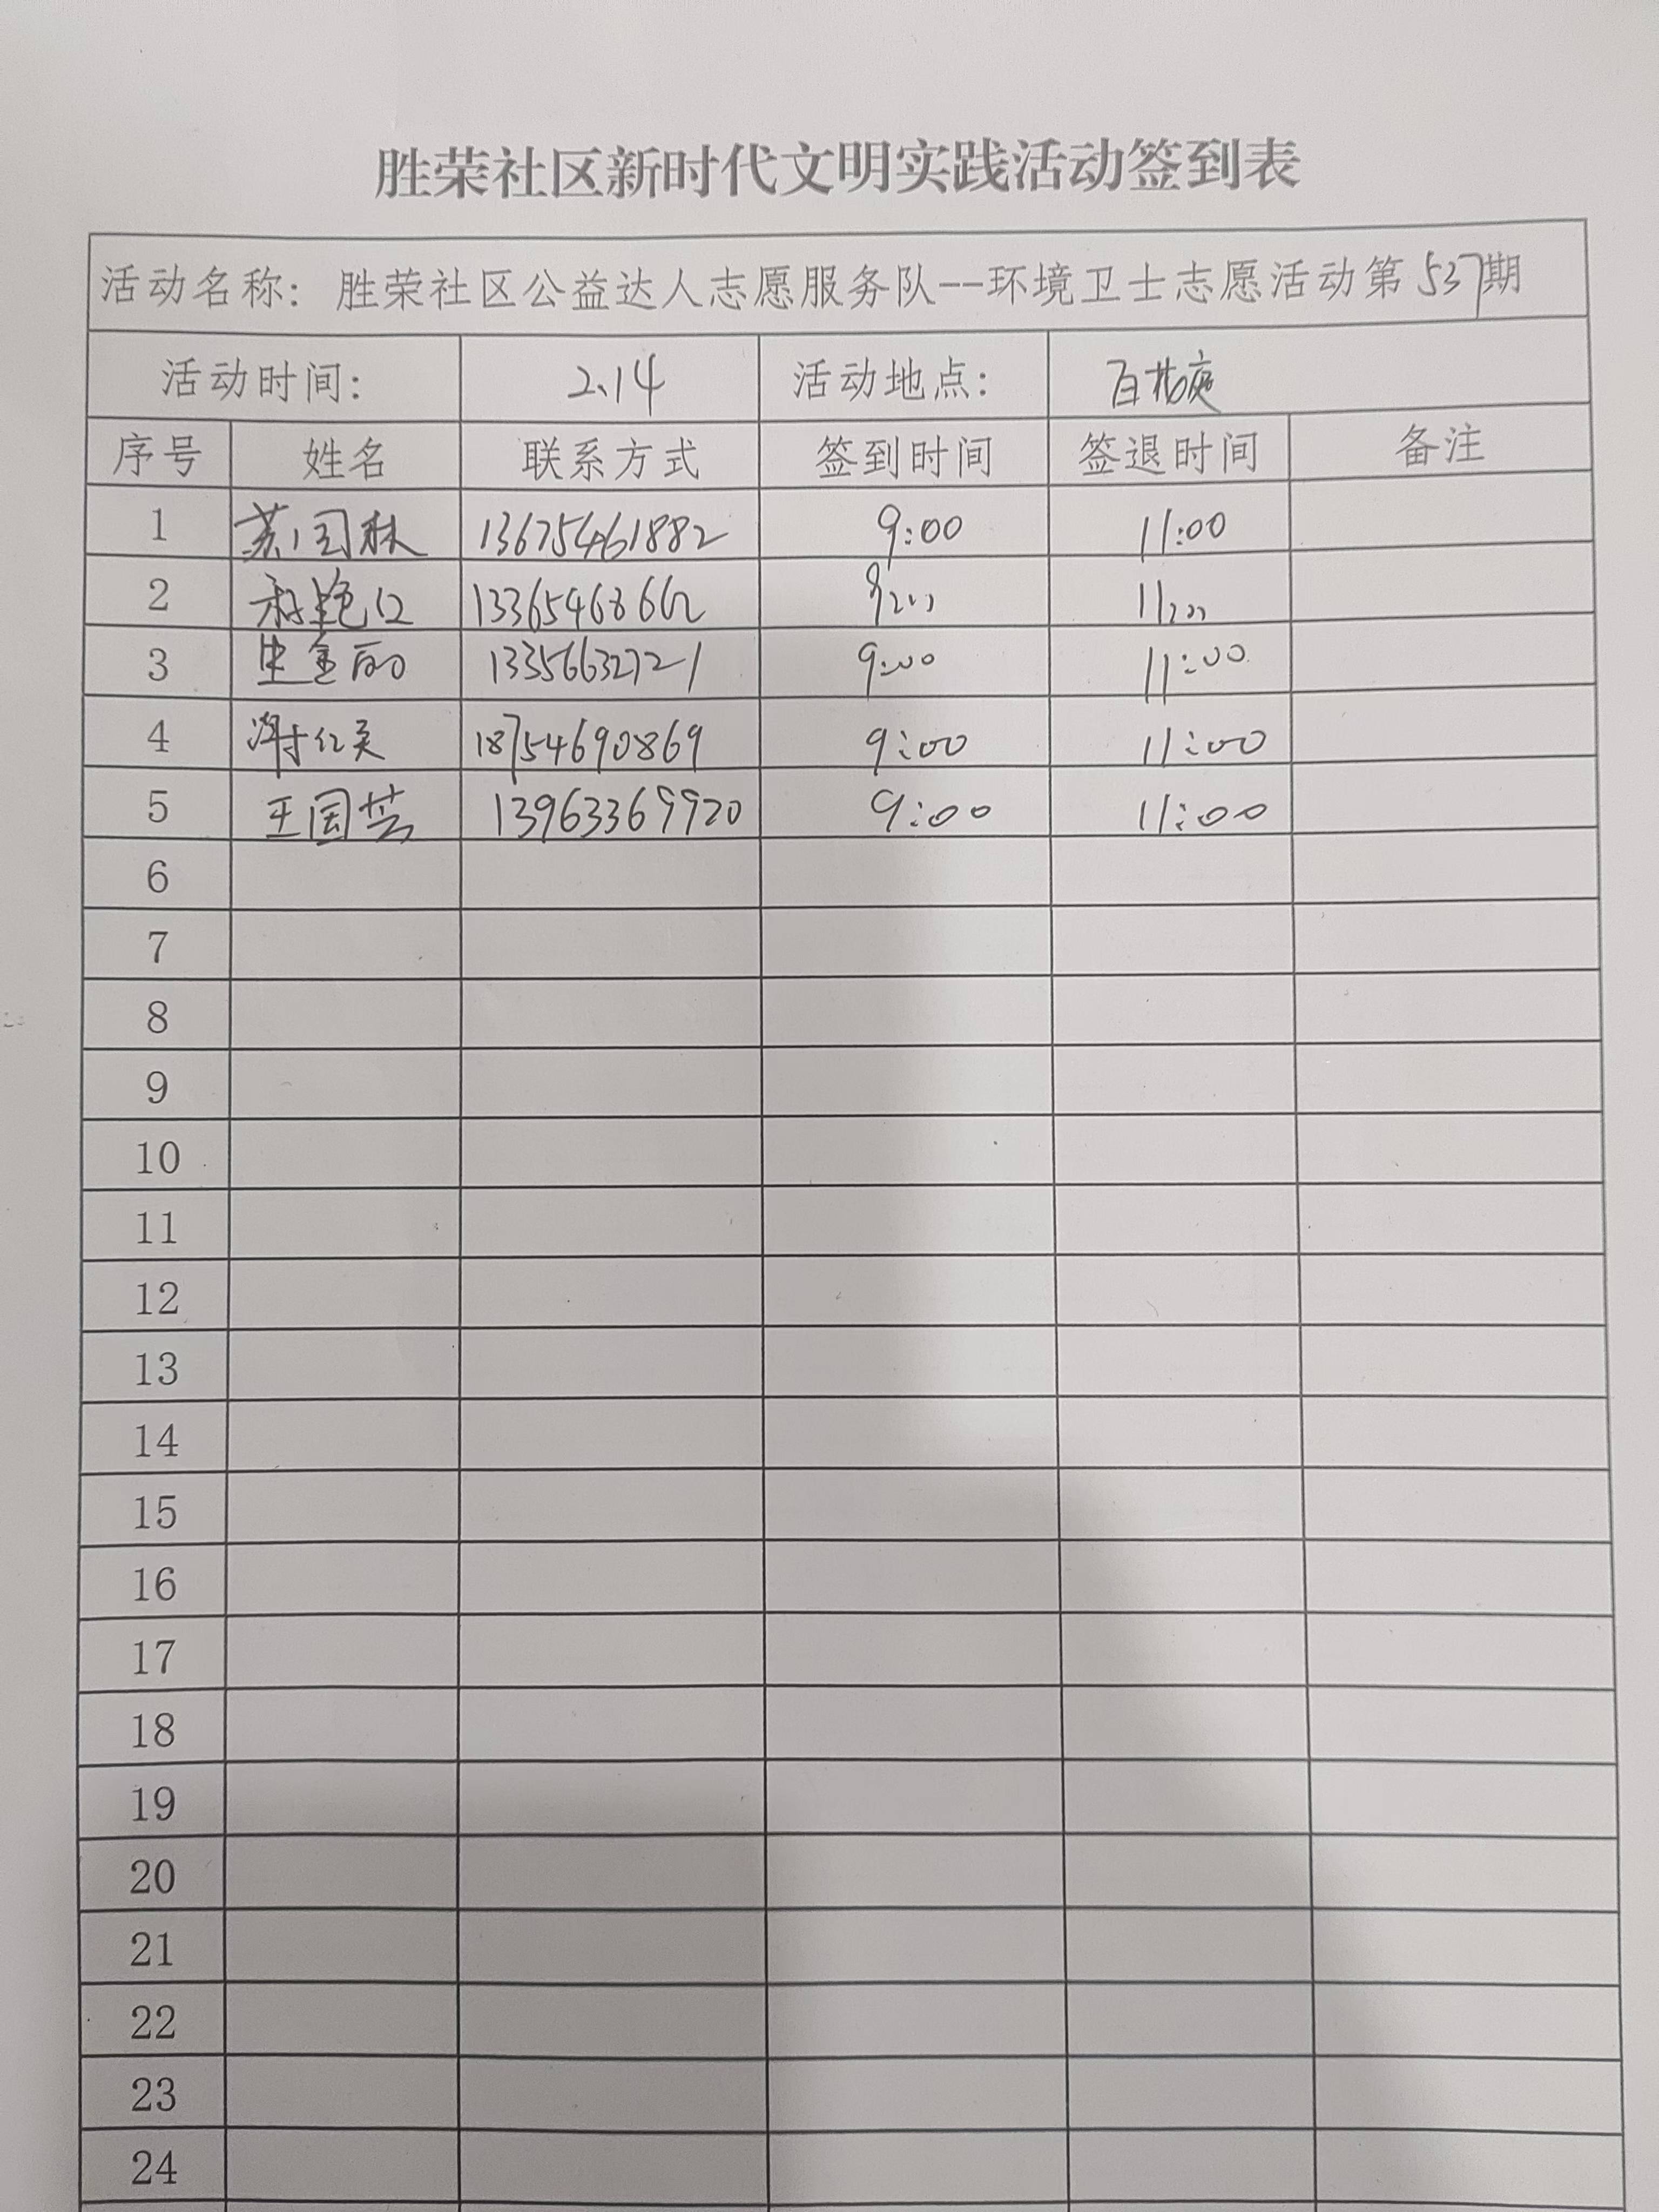 胜荣社区新时代文明实践活动签到表
活动名称：胜荣社区公益达人志愿服务队--环境卫士志愿活动第537期
活动时间： 2.14 活动地点： 百花庭
序号 姓名 联系方式 签到时间 签退时间 备注
1 苏国林 13675461882 9:00 11:00
2 13365468662 9:00 11:00
3 13356632721 9:00 11:00
4 谢红英 18754690869 9:00 11:00
5 王国芸 13963369920 9:00 11:00
6
7
8
9
10
11
12
13
14
15
16
17
18
19
20
21
22
23
24